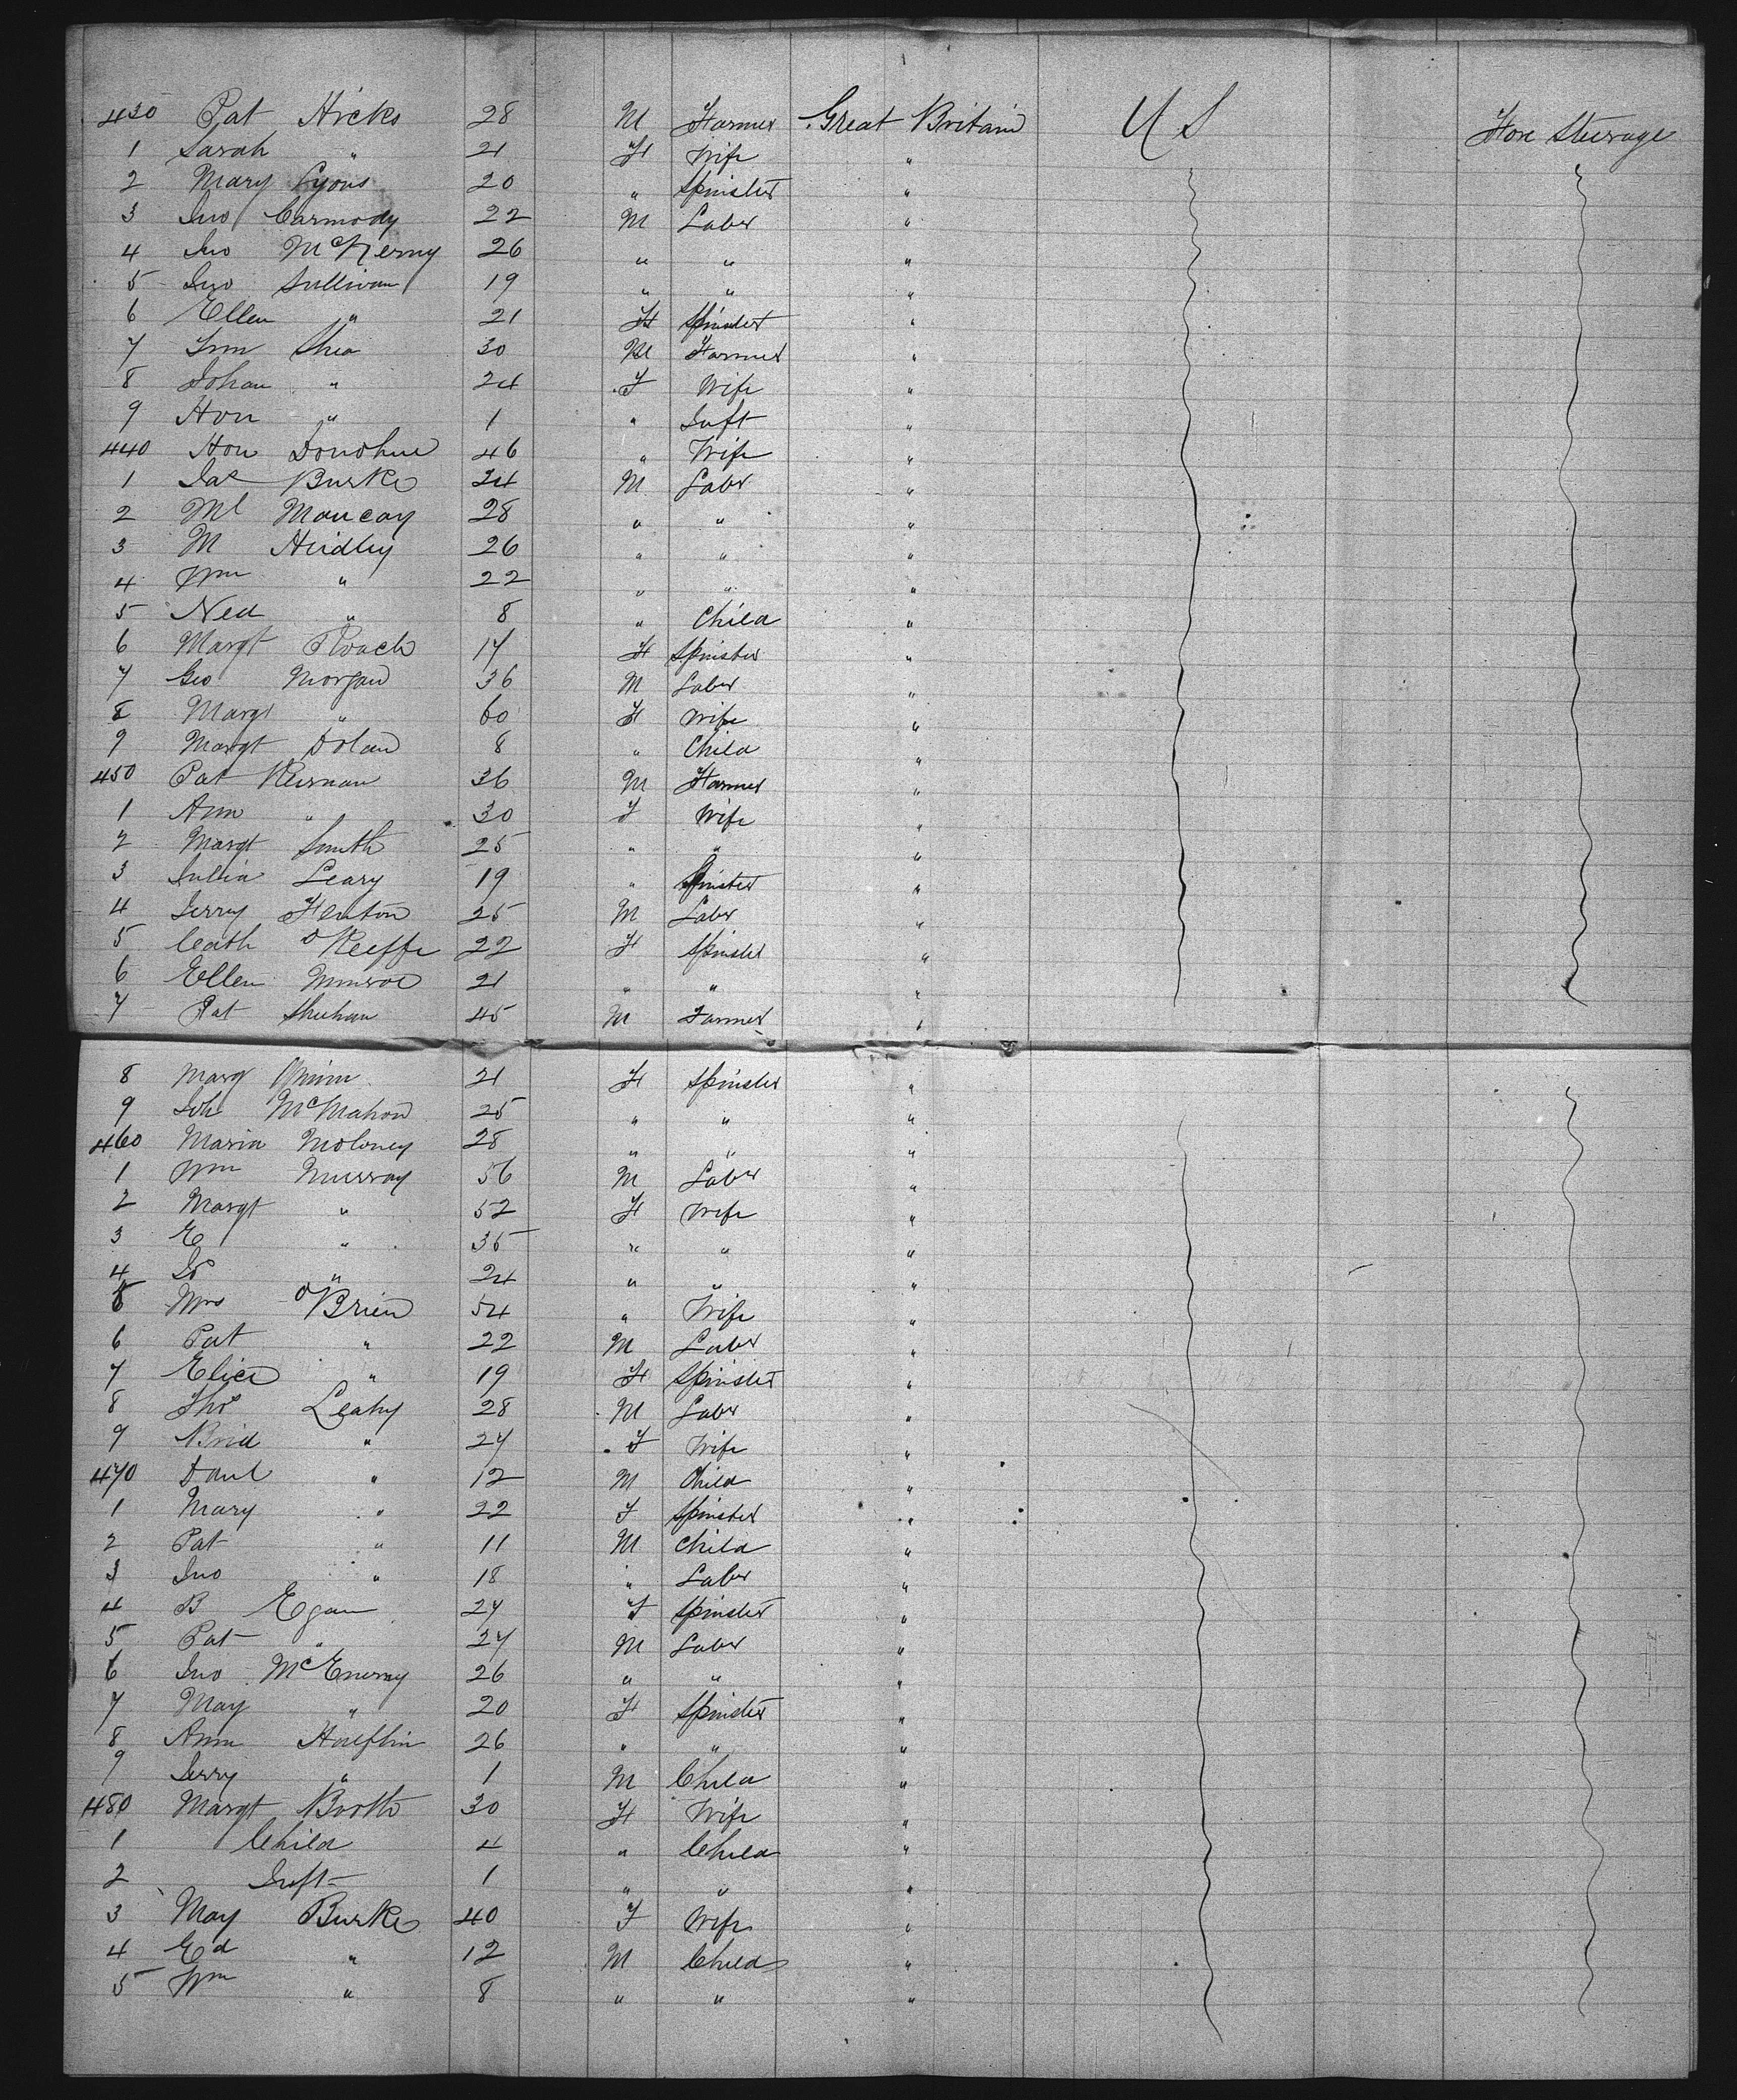 430 Pat Hicks 28 M Farmer Great Britain U S Fore Steerage
1 Sarah " 21 F Wife "
2 Mary Lyons 20 " Spinster "
3 Jno Carmody 22 M Labr "
4 Jno McNerny 26 " " "
5 Jno Sullivan 19 " " "
6 Ellen " 21 F Spinster "
7 Shea 30 M Farmer "
8 Johan " 24 F Wife "
9 Hon " 1 " Inft "
440 Hon Donohue 46 " Wife "
1 Jas Burke 24 M Labr "
2 Ml 28 " " "
3 M Hindley 26 " " "
4 Wm " 22 " " "
5 Ned " 8 " Child "
6 Margt Roach 17 F Spinster "
7 Geo Morgan 36 M Labr "
8 Margt " 60 F Wife "
9 Margt Dolan 8 " Child "
450 Pat Kiernan 36 M Farmer "
1 Ann " 30 F Wife "
2 Margt Smith 25 " " "
3 Julia Leary 19 " Spinster "
4 Jerry Fenton 25 M Labr "
5 Cath O'Keeffe 22 F Spinster "
6 Ellen Munroe 21 " " "
7 Pat Sheehan 45 M Farmer "
8 Marg Quinn 21 F Spinster "
9 Joh McMahon 25 " " "
460 Maria Moloney 28 " " "
1 Wm Murray 56 M Labr "
2 Margt " 52 F Wife "
3 E " 35 " " "
4 " 24 " " "
5 Mrs O'Brien 54 " Wife "
6 Pat " 22 M Labr "
7 Elice " 19 F Spinster "
8 Thos Leahy 28 M Labr "
9 Brid " 27 F Wife "
470 Danl " 12 M Child "
1 Mary " 22 F Spinster "
2 Pat " 11 M Child "
3 Jno " 18 " Labr "
4 B Egan 27 F Spinster "
5 Pat " 27 M Labr "
6 Jno McEnerny 26 " " "
7 May " 20 F Spinster "
8 Ann 26 " " "
9 Jerry " 1 M Child "
480 Margt Booth 30 F Wife "
1 Child 4 " Child "
2 Inft 1 " " "
3 May Burke 40 F Wife "
4 Ed " 12 M Child "
5 Wm " 8 " " "